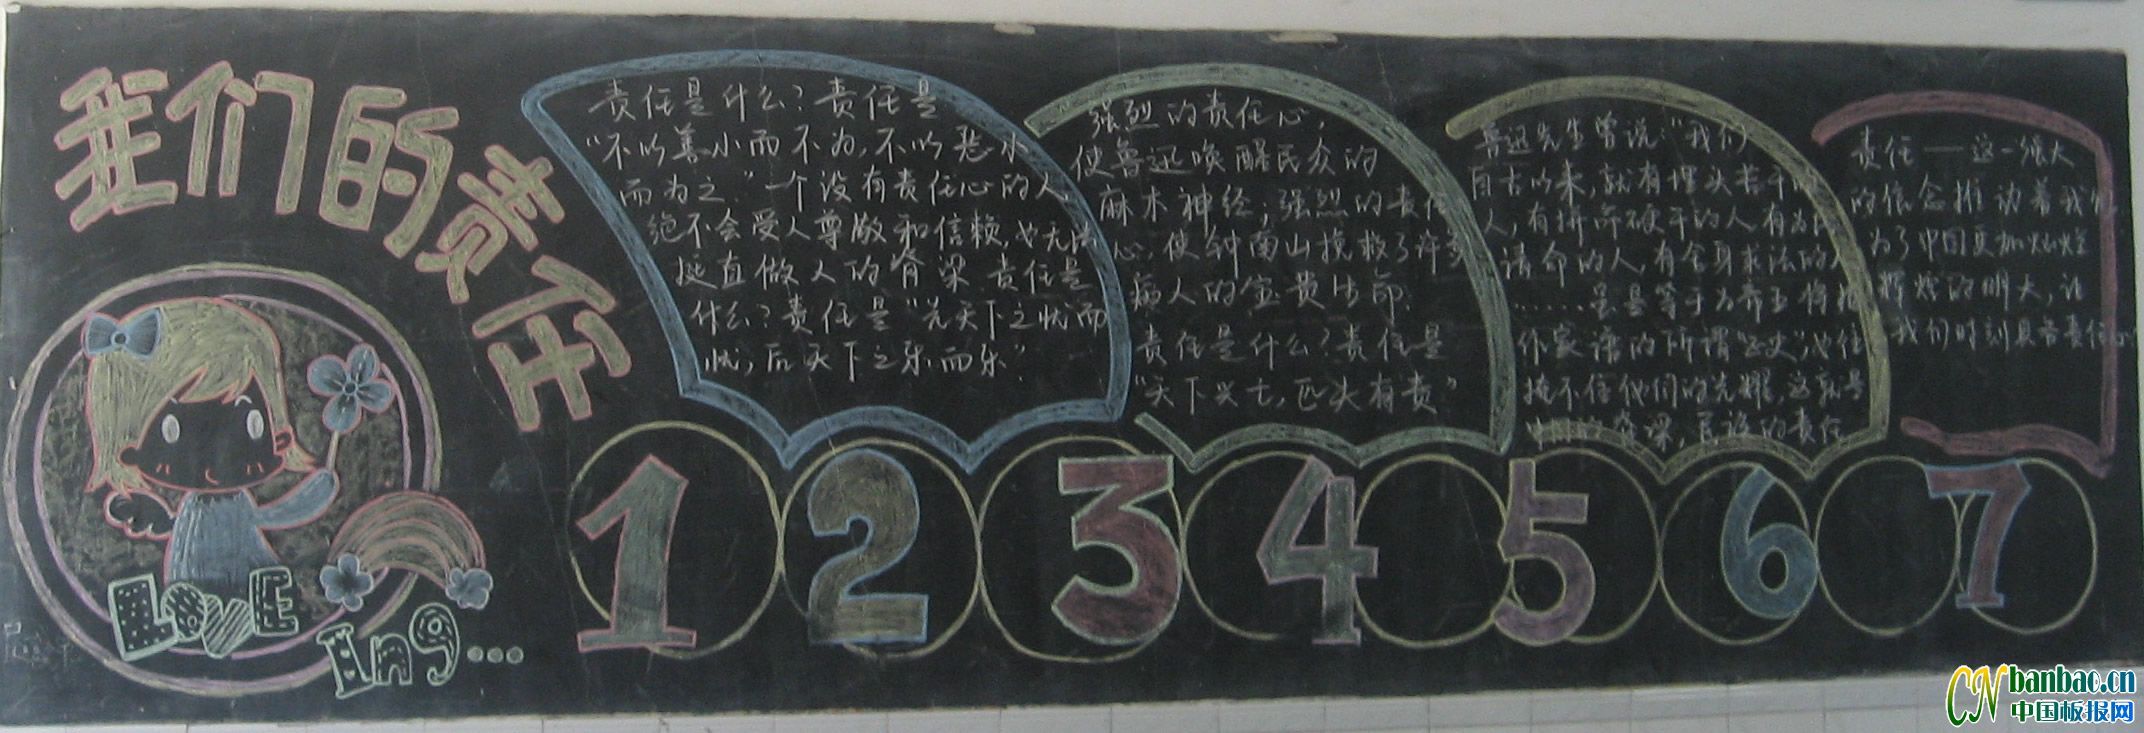 我们的责任
责任是什么?责任是
“不以善小而不为,不以恶小
而为之.”一个没有责任心的人,
绝不会受人尊敬和信赖,也无法
挺直做人的脊梁 责任是
什么?责任是“先天下之忧而
忧,后天下之乐而乐”.
强烈的责任心,
使鲁迅唤醒民众的
麻木神经;强烈的责任
心,使钟南山挽救了许多
病人的宝贵生命.
责任是什么?责任是
“天下兴亡,匹夫有责”
鲁迅先生曾说:“我们
自古以来,就有埋头苦干的
人,有拼命硬干的人有为民
请命的人,有舍身求法的人
......虽是等于为帝王将相
作家谱的所谓“正史”,也往
掩不住他们的光耀,这就是
中国的脊梁,民族的责任
责任——这一强大
的信念推动着我们
为了中国更加灿烂
辉煌的明天,让
我们时刻具备责任心
LOVE
Ing...
1 2 3 4 5 6 7
CN banbao.cn
中国板报网